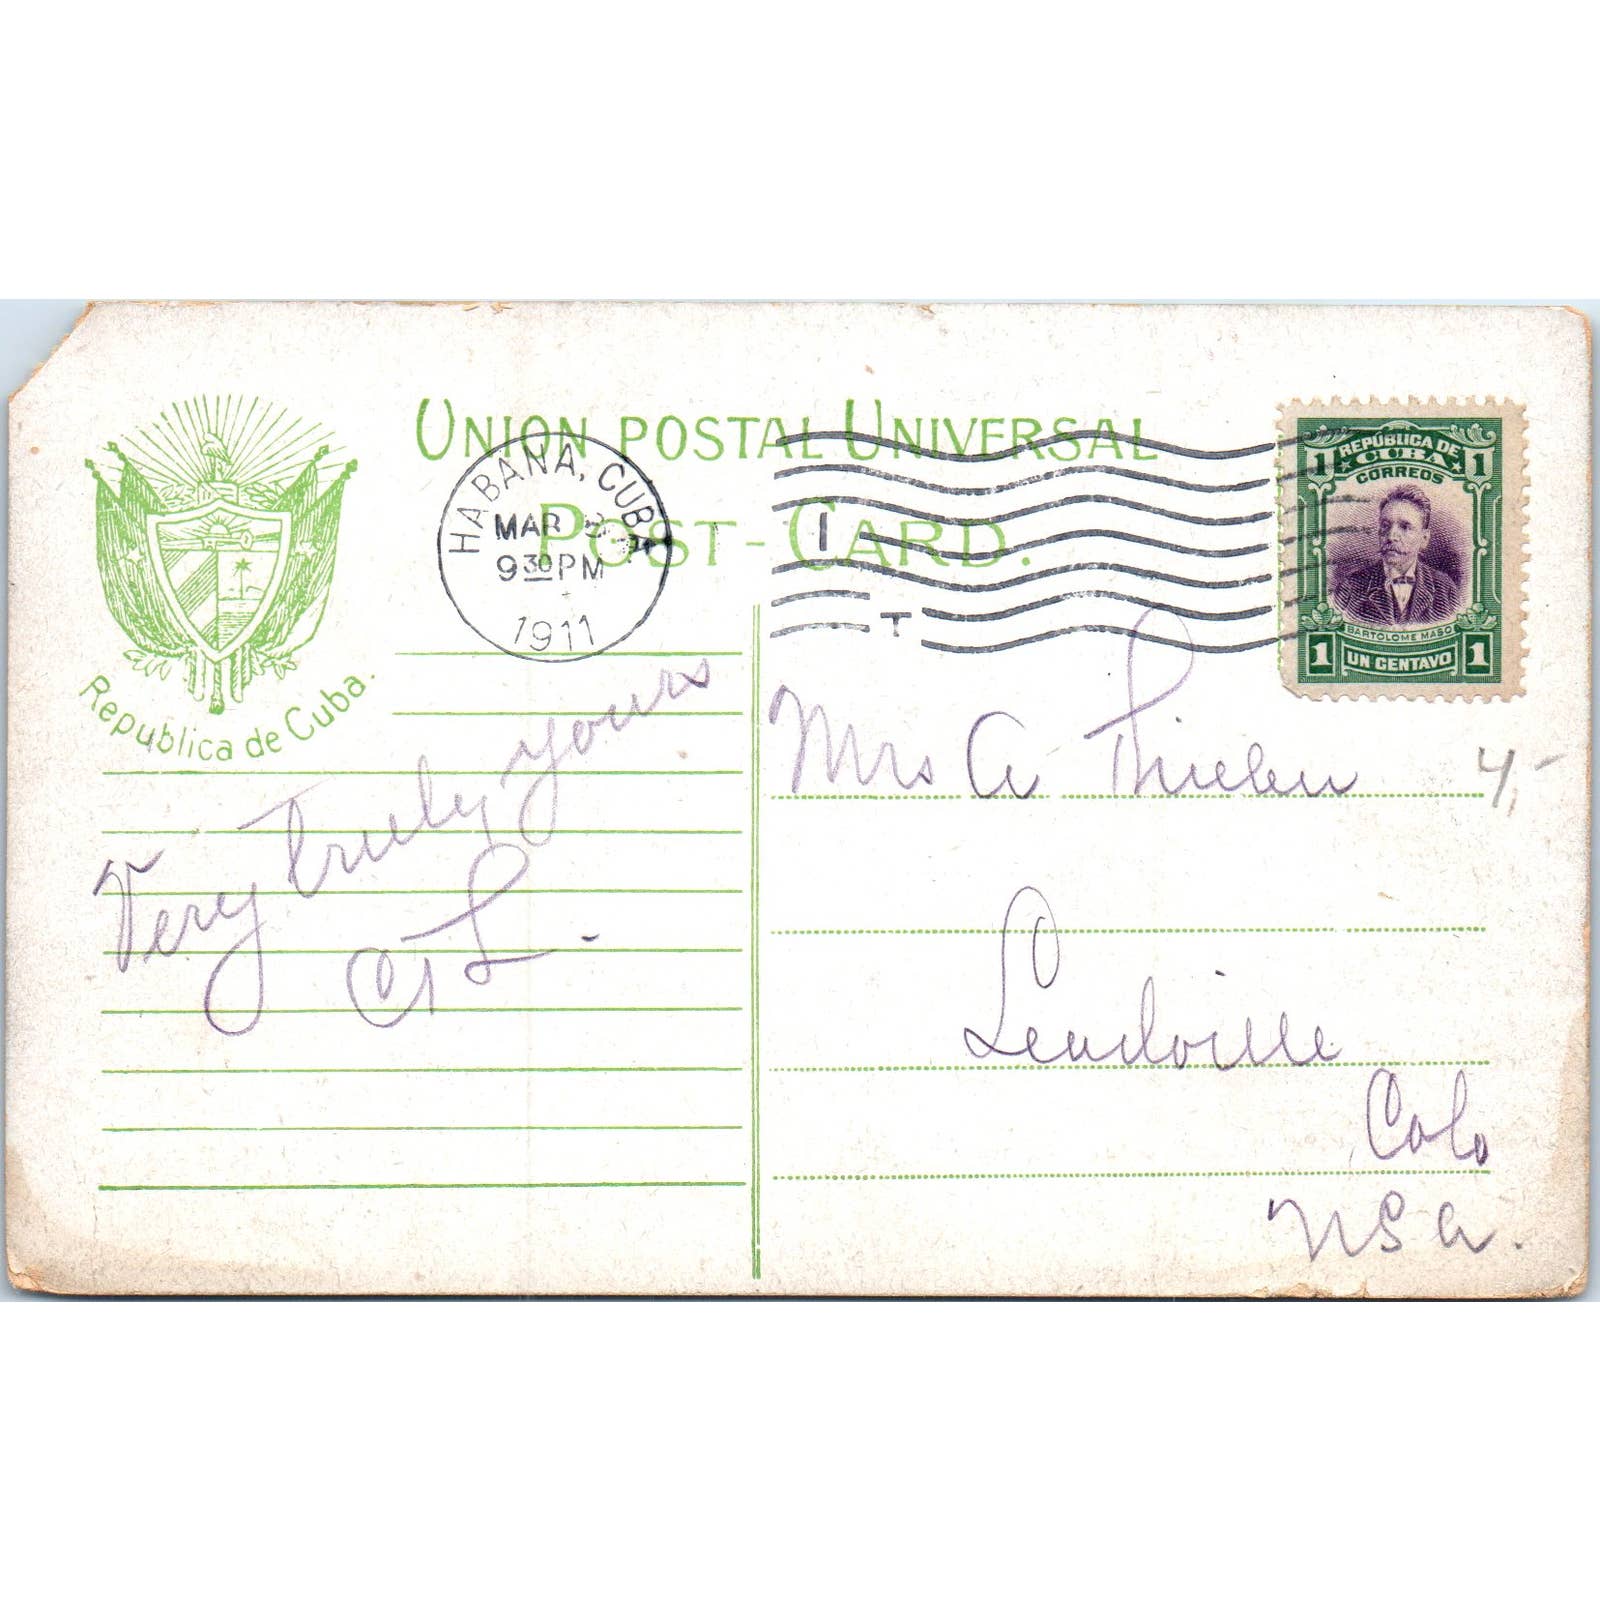 UNION POSTAL UNIVERSAL
POST-CARD.
Republica de Cuba.
HABANA, CUBA
MAR 3
9 30 PM
1911
I
T
1 REPÚBLICA DE 1
CUBA
CORREOS
BARTOLOME MASO
1 UN CENTAVO 1
Very truly yours
Mrs A Thielen
Leadville
Colo
USA.